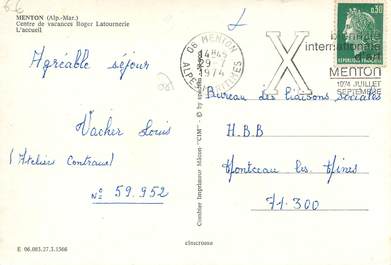 MENTON (Alp.-Mar.)
Centre de vacances Roger Latournerie
L'accueil
Agréable séjour
Vacher Louis
(Ateliers Centraux)
No 59.952
E 06.083.27.3.1566
Combier Imprimeur Mâcon "CIM"
cimcrome
06 MENTON
14H45
29-7
1974
ALPES-MARITIMES
X
biennale
internationale
MENTON
1974 JUILLET
SEPTEMBRE
0,30
REPUBLIQUE FRANÇAISE
Bureau des liaisons sociales
H.B.B
Montceau les Mines
71.300